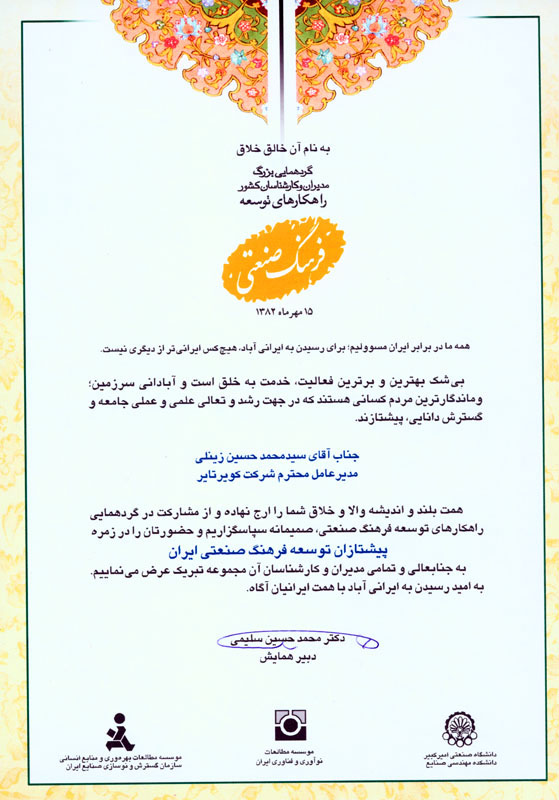 به نام آن خالق خلاق
گردهمایی بزرگ
مدیران و کارشناسان کشور
راهکارهای توسعه
فرهنگ صنعتی
۱۵ مهرماه ۱۳۸۲
همه ما در برابر ایران مسوولیم؛ برای رسیدن به ایرانی آباد، هیچ کس ایرانی تر از دیگری نیست.
بی شک بهترین و برترین فعالیت، خدمت به خلق است و آبادانی سرزمین؛
و ماندگارترین مردم کسانی هستند که در جهت رشد و تعالی علمی و عملی جامعه و
گسترش دانایی، پیشتازند.
جناب آقای سیدمحمد حسین زینلی
مدیرعامل محترم شرکت کویرتایر
همت بلند و اندیشه والا و خلاق شما را ارج نهاده و از مشارکت در گردهمایی
راهکارهای توسعه فرهنگ صنعتی، صمیمانه سپاسگزاریم و حضورتان را در زمره
پیشتازان توسعه فرهنگ صنعتی ایران
به جنابعالی و تمامی مدیران و کارشناسان آن مجموعه تبریک عرض می نماییم.
به امید رسیدن به ایرانی آباد با همت ایرانیان آگاه.
دکتر محمد حسین سلیمی
دبیر همایش
دانشگاه صنعتی امیرکبیر
دانشکده مهندسی صنایع
موسسه مطالعات
نوآوری و فناوری ایران
موسسه مطالعات بهره وری و منابع انسانی
سازمان گسترش و نوسازی صنایع ایران